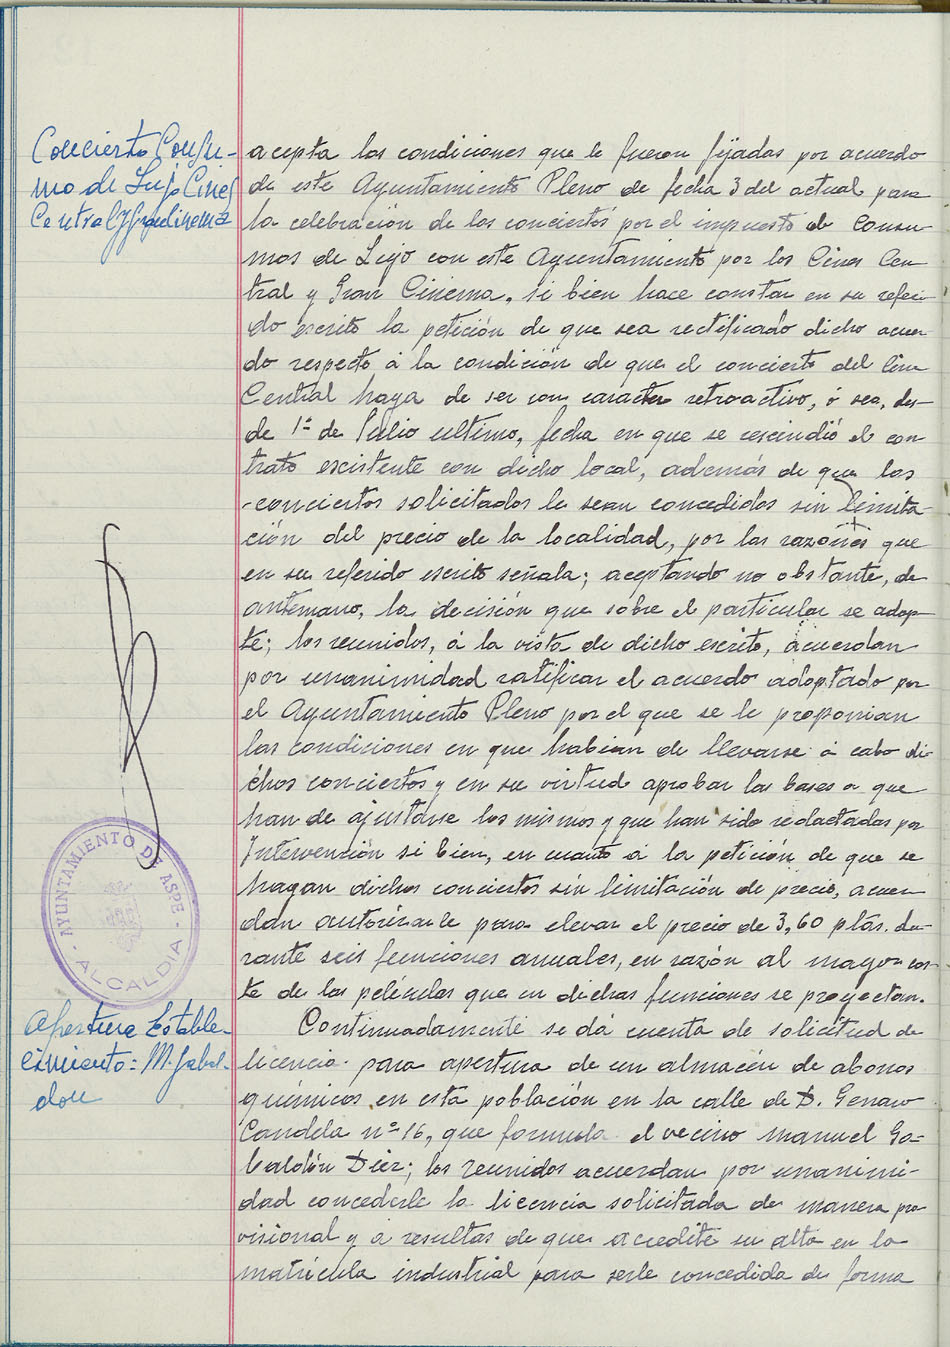 Concierto Consu-
mo de Lujo Cines
Central y Gran Cinema
acepta las condiciones que le fueron fijadas por acuerdo
de este Ayuntamiento Pleno de fecha 3 del actual para
la celebración de los conciertos por el impuesto de Consu-
mos de Lujo con este Ayuntamiento por los Cines Cen-
tral y Gran Cinema, si bien hace constar en su referi-
do escrito la petición de que sea rectificado dicho acuer-
do respecto á la condición de que el concierto del Cine
Central haya de ser con caracter retroactivo, ó sea, des-
de 1º de Julio ultimo, fecha en que se rescindió el con-
trato escistente con dicho local, además de que los
conciertos solicitados le sean concedidos sin limita-
ción del precio de la localidad, por las razones que
en su referido escrito señala; aceptando no obstante, de
antemano, la decisión que sobre el particular se adop-
te; los reunidos, á la vista de dicho escrito, acuerdan
por unanimidad ratificar el acuerdo adoptado por
el Ayuntamiento Pleno por el que se le proponian
las condiciones en que habian de llevarse á cabo di-
chos conciertos y en su virtud aprobar las bases a que
han de ajustarse los mismos y que han sido redactadas por
Intervención si bien, en cuanto á la petición de que se
hagan dichos conciertos sin limitación de precio, acuer-
dan autorizarle para elevar el precio de 3,60 ptas. du-
rante seis funciones anuales, en razón al mayor cos-
te de las películas que en dichas funciones se proyectan.
AYUNTAMIENTO DE ASPE
- ALCALDIA -
Apertura Estable-
cimiento: M. Gabal-
don
Continuadamente se dá cuenta de solicitud de
licencia para apertura de un almacén de abonos
químicos en esta población en la calle de D. Genaro
Candela nº 16, que formula el vecino Manuel Ga-
baldón Diez; los reunidos acuerdan por unanimi-
dad concederle la licencia solicitada de manera pro-
visional y á resultas de que acredite su alta en la
matrícula industrial para serle concedida de forma